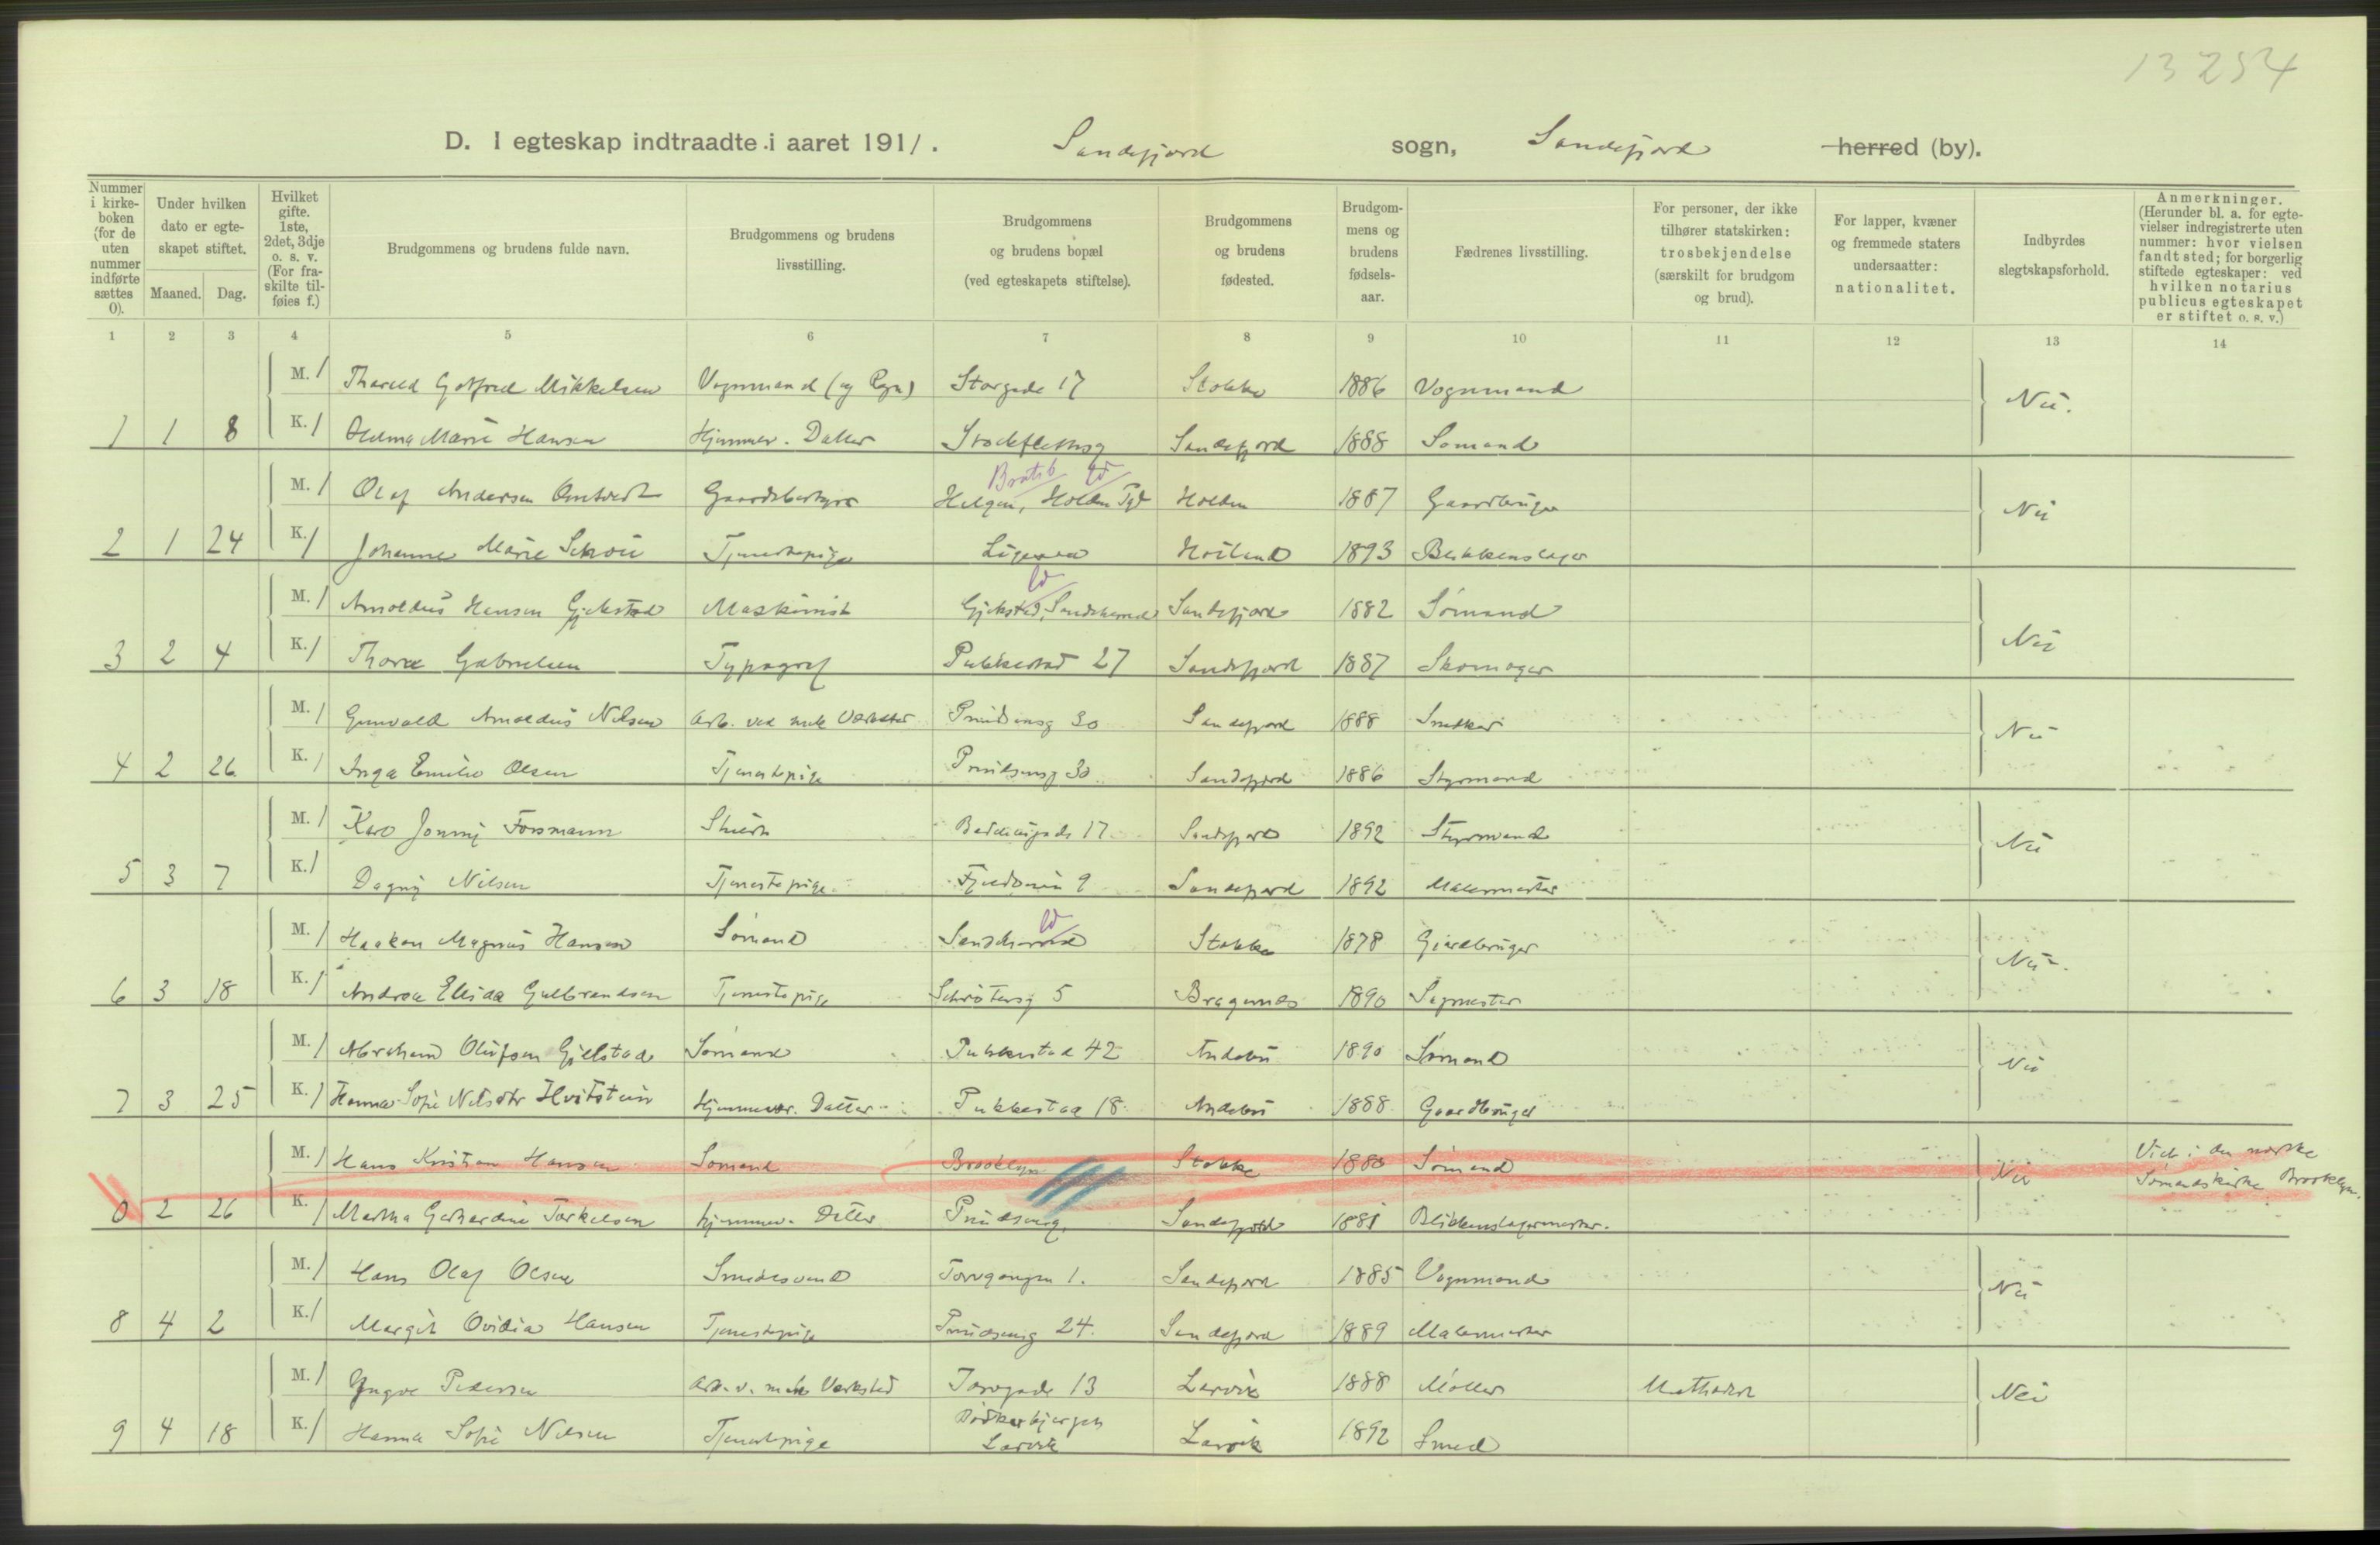 13254
D. I egteskap indtraadte i aaret 1911. Sandefjord sogn, Sandefjord herred (by).
Nummer i kirke-boken (for de uten nummer indførte sættes 0).
Under hvilken dato er egte-skapet stiftet.
Maaned. Dag.
Hvilket gifte. 1ste, 2det, 3dje o. s. v. (For fra-skilte til-føies f.)
Brudgommens og brudens fulde navn.
Brudgommens og brudens livsstilling.
Brudgommens og brudens bopæl (ved egteskapets stiftelse).
Brudgommens og brudens fødested.
Brudgom-mens og brudens fødsels-aar.
Fædrenes livsstilling.
For personer, der ikke tilhører statskirken: trosbekjendelse (særskilt for brudgom og brud).
For lapper, kvæner og fremmede staters undersaatter: nationalitet.
Indbyrdes slegtskapsforhold.
Anmerkninger. (Herunder bl. a. for egte-vielser indregistrerte uten nummer: hvor vielsen fandt sted; for borgerlig stiftede egteskaper: ved hvilken notarius publicus egteskapet er stiftet o. s. v.)
1 2 3 4 5 6 7 8 9 10 11 12 13 14
M. 1 Gotfred Mikkelsen Vognmand Storgade 17 Stokke 1886 Vognmand Nei.
1 1 8 K. 1 Marie Hansen Hjemmev. Datter Stockflethsg Sandefjord 1888 Sømand
Bratsb Ld
M. 1 Olaf Andersen Gaardsbestyrer Helgen, Holden Holden 1887 Gaardbruger Nei
2 1 24 K. 1 Johanne Marie Schou Tjenestepige 1893 Blikkenslager
Ld
M. 1 Arnoldus Hansen Gjekstad Maskinist Gjekstad, Sandeherred Sandefjord 1882 Sømand Nei
3 2 4 K. 1 Thora Gabrielsen Typograf Pukkestad 27 Sandefjord 1887 Skomager
M. 1 Gunvald Arnoldus Nilsen Arb. ved mek Værksted Prindsensg 30 Sandefjord 1888 Snedker Nei
4 2 26 K. 1 Inga Emilie Olsen Tjenestepige Prindsensg 30 Sandefjord 1886 Styrmand
M. 1 Forsmann 17 Sandefjord 1892 Styrmand Nei
5 3 7 K. 1 Dagny Nilsen Tjenestepige Fjeldveien 9 Sandefjord 1892 Malermester
Ld
M. 1 Haakon Magnus Hansen Sømand Sandeherred Stokke 1878 Gaardbruger Nei.
6 3 18 K. 1 Andrea Elida Gulbrandsen Tjenestepige Schrøtersg 5 Bragernes 1890 Sagmester
M. 1 Abraham Olufsen Gjelstad Sømand Pukkestad 42 Andebu 1890 Sømand Nei
7 3 25 K. 1 Hanna Sofie Nilsdtr Hvitstein Hjemmevær. Datter Pukkestad 18 Andebu 1888 Gaardbruger
M. 1 Hans Kristian Hansen Sømand Brooklyn Stokke 1880 Sømand Nei Viet i den norske
0 2 26 K. 1 Martha Gerhardine Torkelsen Hjemmev. Datter Prindsensg. Sandefjord 1881 Blikkenslagermester. Sømandskirke Brooklyn.
M. 1 Hans Olaf Olsen Smedesvend Torvgangen 1. Sandefjord 1885 Vognmand Nei
8 4 2 K. 1 Margit Ovidia Hansen Tjenestepige Prindsensg 24. Sandefjord 1889 Malermester
M. 1 Yngve Pedersen Arb. v. mek Værksted Torvgade 13 Larvik 1888 Møller Methodist Nei
9 4 18 K. 1 Hanna Sofie Nilsen Tjenestepige Bødkerbjerget Larvik Larvik 1892 Smed